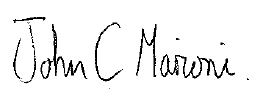 John C Marioni.